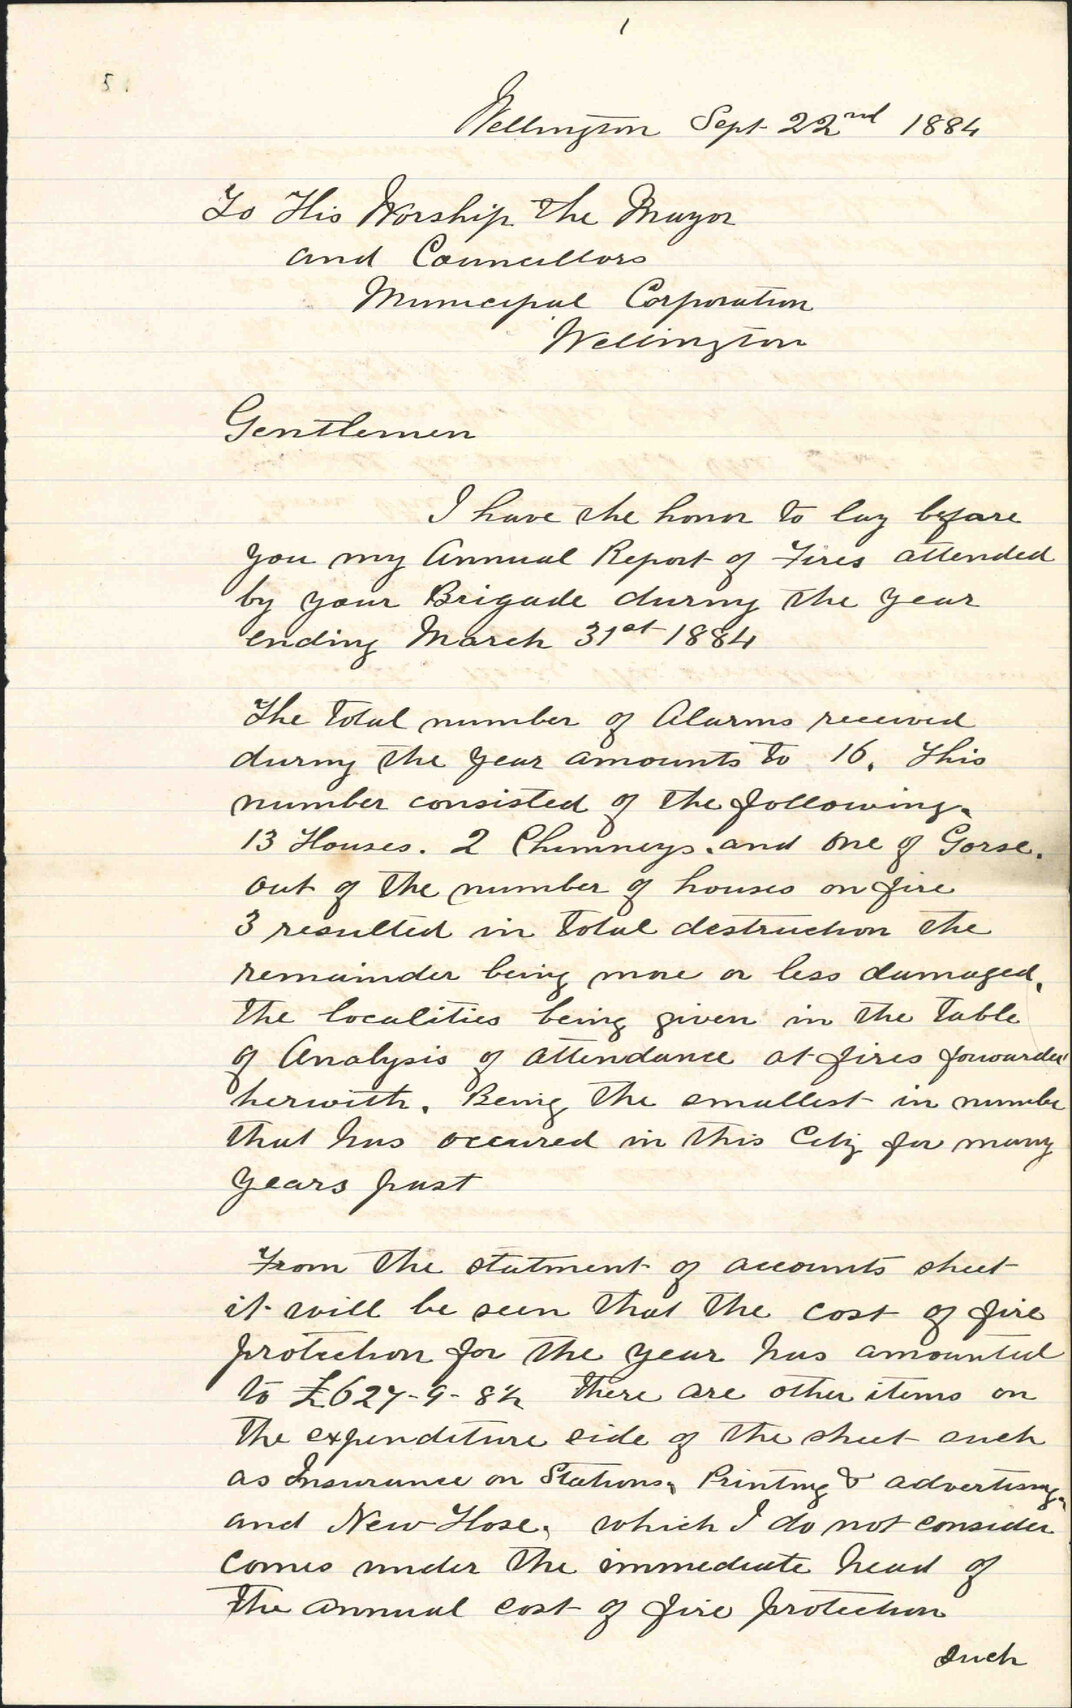 1
5
Wellington Sept 22nd 1884
To His Worship the Mayor
and Councillors
Municipal Corporation
Wellington
Gentlemen
I have the honor to lay before
you my Annual Report of Fires attended
by your Brigade during the year
ending March 31st 1884
The total number of Alarms received
during the year amounts to 16. This
number consisted of the following.
13 Houses. 2 Chimneys. and one of Gorse.
out of the number of houses on fire
3 resulted in total destruction the
remainder being more or less damaged.
the localities being given in the table
of Analysis of attendance at fires forwarded
herwith. Being the smallest in number
that has occured in this City for many
years past
From the statment of accounts sheet
it will be seen that the cost of fire
protection for the year has amounted
to £627-9-8½ there are other items on
the expenditure side of the sheet such
as Insurance on Stations, Printing & advertising,
and New Hose, which I do not consider
comes under the immediate head of
the annual cost of fire protection
such